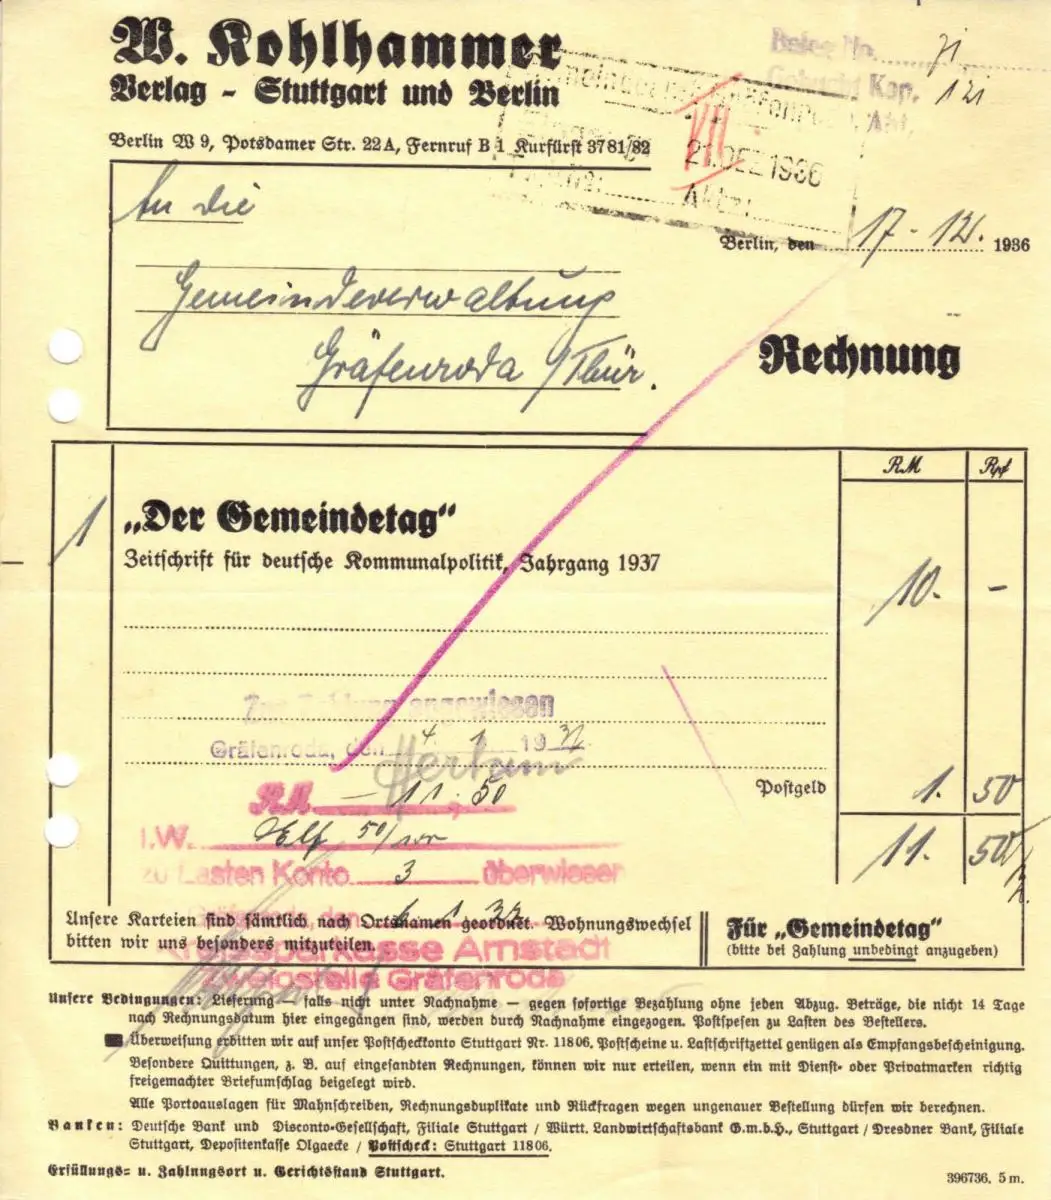 W. Kohlhammer
Verlag - Stuttgart und Berlin
Beleg No. 71
Gebucht Kap. 121
Abt.
Berlin W 9, Potsdamer Str. 22 A, Fernruf B 1 Kurfürst 3781/82
VII
21. DEZ 1936
Aktz:
An die
Berlin, den 17.-12. 1936
Gemeindeverwaltung
Gräfenroda /Thür.
Rechnung
RM Rpf
1 „Der Gemeindetag"
Zeitschrift für deutsche Kommunalpolitik, Jahrgang 1937
10. -
Zur Zahlung angewiesen
Gräfenroda, den 4. 1. 1937
Postgeld 1. 50
RM - 11.50
I.W. Elf 50/
11. 50
zu Lasten Konto 3 überwiesen
Gräfenroda, den 6 1 37
Unsere Karteien sind sämtlich nach Ortsnamen geordnet. Wohnungswechsel
bitten wir uns besonders mitzuteilen.
Für „Gemeindetag"
(bitte bei Zahlung unbedingt anzugeben)
Kreissparkasse Arnstadt
Zweigstelle Gräfenroda
Unsere Bedingungen: Lieferung — falls nicht unter Nachnahme — gegen sofortige Bezahlung ohne jeden Abzug. Beträge, die nicht 14 Tage
nach Rechnungsdatum hier eingegangen sind, werden durch Nachnahme eingezogen. Postspesen zu Lasten des Bestellers.
Überweisung erbitten wir auf unser Postscheckkonto Stuttgart Nr. 11806. Postscheine u. Lastschriftzettel genügen als Empfangsbescheinigung.
Besondere Quittungen, z. B. auf eingesandten Rechnungen, können wir nur erteilen, wenn ein mit Dienst- oder Privatmarken richtig
freigemachter Briefumschlag beigelegt wird.
Alle Portoauslagen für Mahnschreiben, Rechnungsduplikate und Rückfragen wegen ungenauer Bestellung dürfen wir berechnen.
Banken: Deutsche Bank und Disconto-Gesellschaft, Filiale Stuttgart / Württ. Landwirtschaftsbank G.m.b.H., Stuttgart / Dresdner Bank, Filiale
Stuttgart, Depositenkasse Olgaecke / Postscheck: Stuttgart 11806.
Erfüllungs- u. Zahlungsort u. Gerichtsstand Stuttgart.
396736. 5 m.